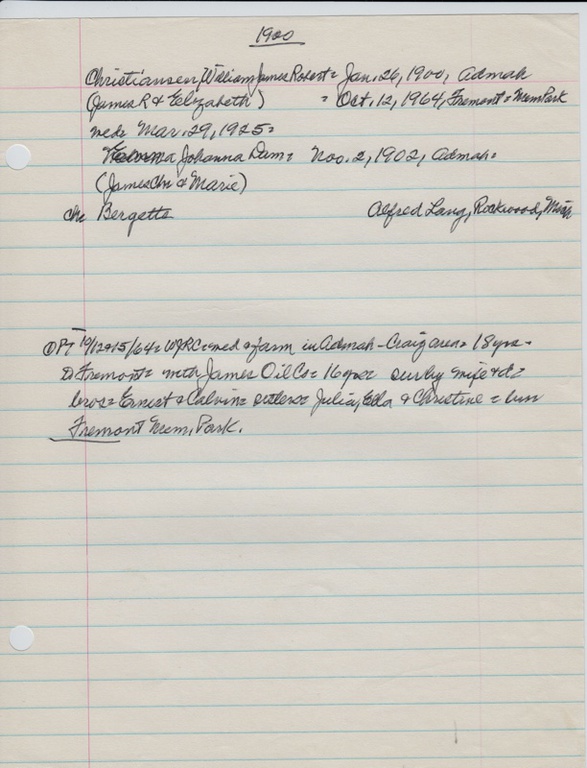 1900
Christiansen, William James Robert = Jan. 26, 1900, Admah
(James R & Elizabeth) = Oct. 12, 1964, Fremont = Mem Park
med = Mar. 29, 1925 =
Johanna Dam = Nov. 2, 1902, Admah =
(James Chr & Marie)
ch: Bergetta Alfred Lang, Rockwood, Mich
① PT 10/12+15/64 = WJRC = med & farm in Admah - Craig area = 18 yrs =
Fremont = with James Oil Co = 16 yrs surv by wife + d =
bros = Ernest & Calvin = sisters = Julia, Ella & Christine = bur
Fremont Mem. Park.